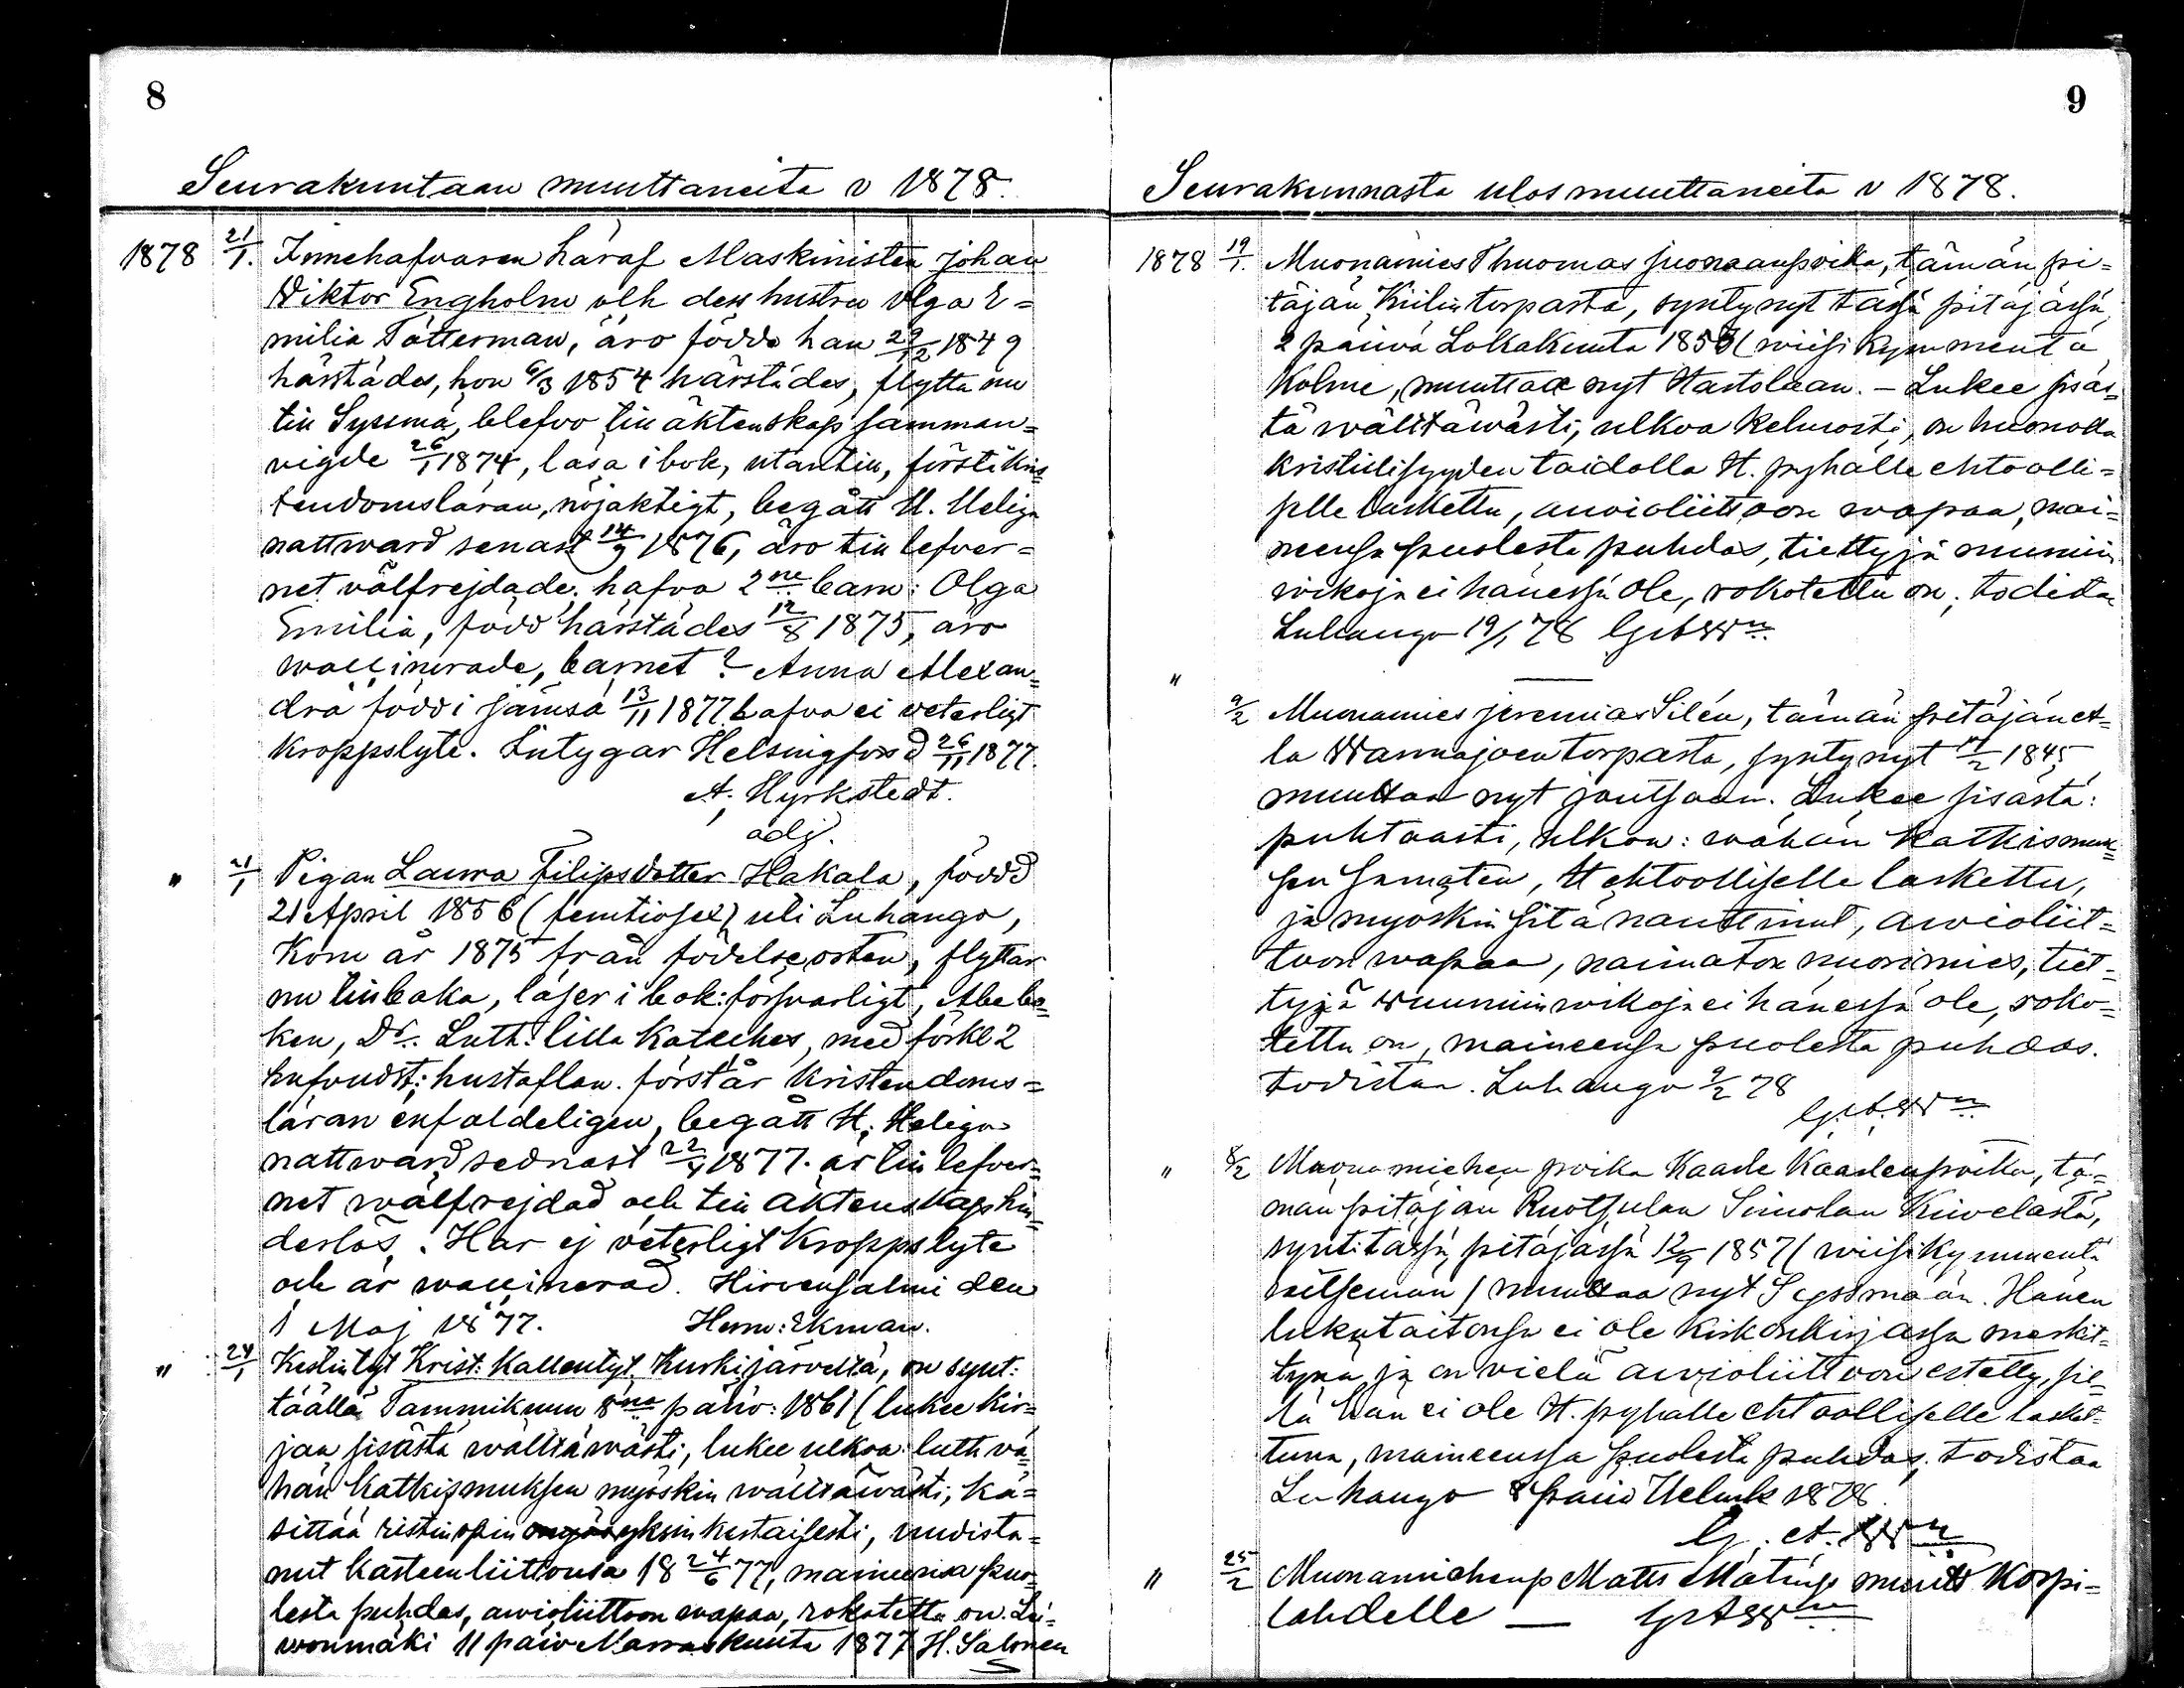 8
Seurakuntaan muuttaneita v 1878.
1878 21/1. Innehafvaren häraf Maskinisten Johan
Viktor Engholm och dess hustru Olga E=
milia Totterman, äro födda han 29/12 1849
härstädes, hon 6/3 1854 härstädes, flytta nu
till Syssmä, blefvo till äktenskap samman=
vigde 26/1 1874, läsa i bok, utantill, förstå kris=
tendomsläran, nöjaktigt, begått H. Heliga
nattward senast 14/9 1876, äro till lefver=
net välfrejdade, hafva 2ne barn: Olga
Emilia, född härstädes 12/8 1875, äro
waccinerade, barnet? Anna Alexan=
dra född i Jämsä 13/11 1877 hafva ei veterligt
kroppslyte. Intygar Helsingfors d 26/11 1877.
A. Hyrkstedt.
adj.
" 21/1 Pigan Laura Filipsdotter Hakala, född
21 April 1856 (femtiosex) uti Luhango,
Kom år 1875 från födelseorten, flyttar
nu tillbaka, läser i bok: försvarligt, Abebo=
ken, Dr. Luth: lilla Kateches, med förkl 2
hufvudst; hustaflan. förstår Kristendoms=
läran enfaldeligen, begått H. Heliga
nattward sednast 22/4 1877. är till lefver=
net wälfrejdad och till äktenskap hin=
derslös. Har ej veterligt Kroppslyte
och är waccinerad. Hirvensalmi den
1 Maj 1877. Herm: Ekman.
" 24/1 Kestintyt Krist: Kallentyt Kurkijärveltä, on synt:
täällä Tammikuun 8na päiv: 1861 (lukee kir=
jaa sisästä wälttäwästi, lukee ulkoa: luth vä=
hän Katkismuksen myöskin wälttäwästi, kä=
sittää ristinopin yksinkertaisesti, uudista=
nut kasteenliittonsa 18 24/6 77, maineensa puo=
lesta puhdas, awioliittoon wapaa, rokotettu on. Lei=
wonmäki 11 päiv Marraskuuta 1877 H. Salonen
9
Seurakunnasta ulosmuuttaneita v 1878.
1878 19/1. Muonamies Thuomas Juonaanpoika, tämän pi=
täjän Kiilin torpasta, syntynyt tässä pitäjässä,
2 päiwä Lokakuuta 1853 (wiisi kymmentä
Kolme, muuttaa nyt Hartolaan. – Lukee sisäs=
tä wälttäwästi, ulkoa kelwosti, on huonolla
kristillisyyden taidolla H. pyhälle ehtoolli=
selle laskettu, awioliittoon wapaa, mai=
neensa puolesta puhdas, tiettyjä ruumiin
wikoja ei hänessä ole, rokotettu on, todistaa
Luhango 19/1 78
"
9/2 Muonamies Jeremias Silén, tämän pitäjän et=
la Wannajoen torpasta, syntynyt 1845
muuttaa nyt Joutsaan. Lukee sisästä:
puhtaasti, ulkoa: wähän Katkismuk=
sen, H ehtoolliselle laskettu,
ja myöskin sitä nauttinut, awioliit=
toon wapaa, naimaton nuorimies, tiet=
tyjä ruumiin wikoja ei hänessä ole, roko=
tettu on, maineensa puolesta puhdas.
todistaa. Luhango 9/2 78
" 8/2 Muonamiehen poika Kaarle Kaarlenpoika, tä=
män pitäjän Ruotsulan Simolan Kiwelästä,
synt: tässä pitäjässä 12/9 1857 (wiisikymmentä
seitsemän) muuttaa nyt Syssmään. Hänen
lukutaitonsa ei ole kirkonkirjassa merkit=
tynä, ja on vielä awioliittoon estetty, sil=
lä hän ei ole H. pyhälle ehtoolliselle lasket=
tuna, maineensa puolesta puhdas, todistaa
Luhango 8 päiv Helmik 1878.
" 25/2 Muonamiehenp Matts Matinp muutt Korpi=
lahdelle —